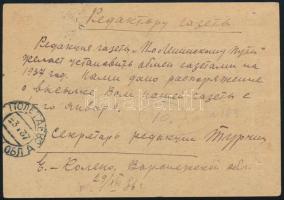 Редактору газеты
Редакция газеты "По Ленинскому Пути"
желает установить обмен газетами на
1937 год. Нами дано распоряжение
о высылке Вам нашей газеты с
1го января.
Секретарь редакции
Е.-Колено, Воронежской обл.
29/XII 36г.